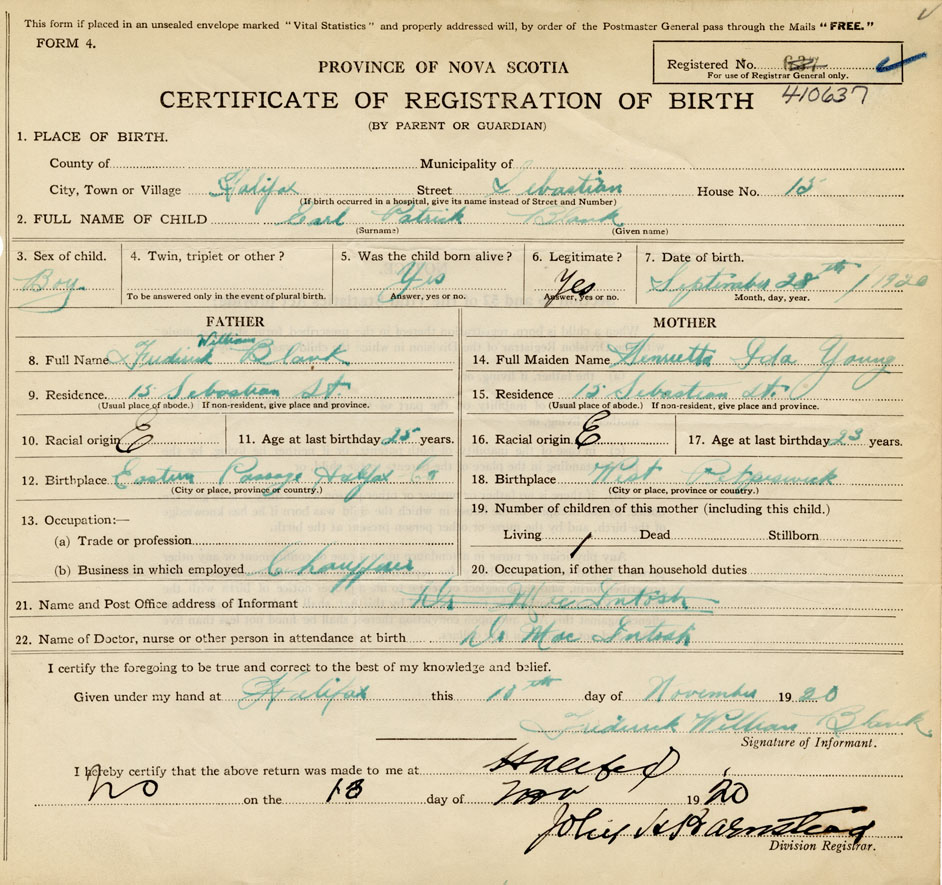 This form if placed in an unsealed envelope marked "Vital Statistics" and properly addressed will, by order of the Postmaster General pass through the Mails "FREE."
FORM 4.
Registered No.
For use of Registrar General only.
410637
PROVINCE OF NOVA SCOTIA
CERTIFICATE OF REGISTRATION OF BIRTH
(BY PARENT OR GUARDIAN)
1. PLACE OF BIRTH.
County of Municipality of
City, Town or Village Halifax Street Sebastian House No. 15
(If birth occurred in a hospital, give its name instead of Street and Number)
2. FULL NAME OF CHILD Earl Patrick Blank
(Surname) (Given name)
3. Sex of child. 4. Twin, triplet or other? 5. Was the child born alive? 6. Legitimate? 7. Date of birth.
Boy Yes Yes September 28th / 1920
To be answered only in the event of plural birth. Answer, yes or no. Answer, yes or no. Month, day, year.
FATHER MOTHER
William
8. Full Name Frederick Blank 14. Full Maiden Name Henrietta Ida Young
9. Residence. 15 Sebastian St. 15. Residence 15 Sebastian St.
(Usual place of abode.) If non-resident, give place and province. (Usual place of abode.) If non-resident, give place and province.
10. Racial origin E 11. Age at last birthday 25 years. 16. Racial origin E 17. Age at last birthday 23 years.
12. Birthplace Eastern Passage Halifax Co 18. Birthplace West Petpeswick
(City or place, province or country.) (City or place, province or country.)
13. Occupation:— 19. Number of children of this mother (including this child.)
(a) Trade or profession Living 1 Dead Stillborn
(b) Business in which employed Chauffeur 20. Occupation, if other than household duties
21. Name and Post Office address of Informant Dr MacIntosh
22. Name of Doctor, nurse or other person in attendance at birth Dr MacIntosh
I certify the foregoing to be true and correct to the best of my knowledge and belief.
Given under my hand at Halifax this 18th day of November 1920
Frederick William Blank
Signature of Informant.
I hereby certify that the above return was made to me at Halifax
No on the 18 day of Nov 1920
John H Barnstead
Division Registrar.